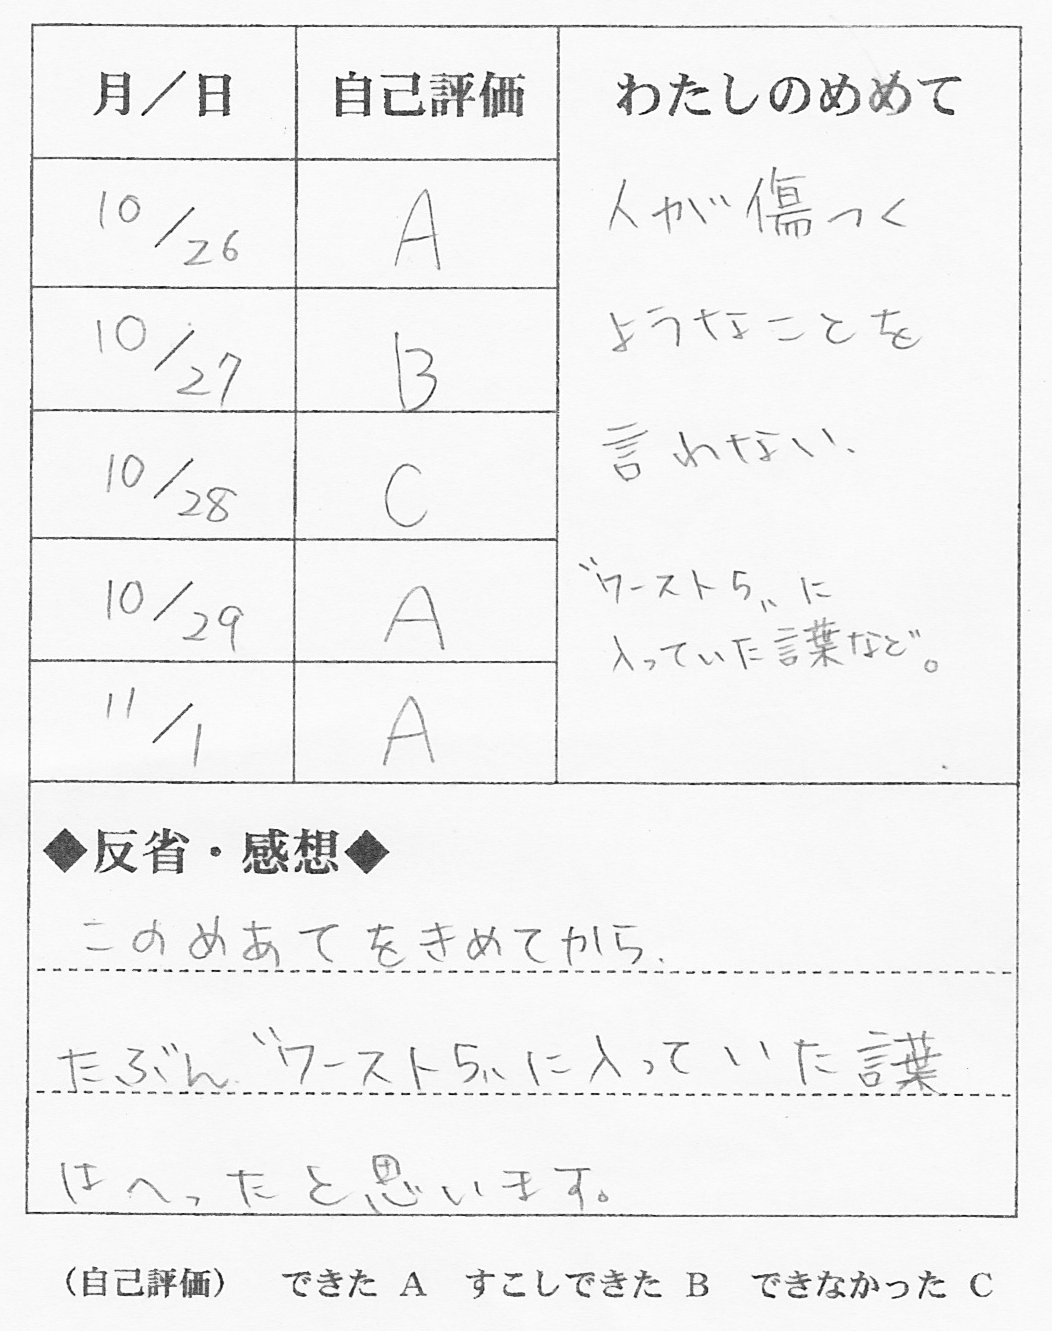 月／日 自己評価 わたしのめめて
10/26 A
10/27 B
10/28 C
10/29 A
11/1 A
人が傷つく
ようなことを
言わない、
〝ワースト5〟に
入っていた言葉など。
◆反省・感想◆
このめあてをきめてから、
たぶん〝ワースト5〟に入っていた言葉
はへったと思います。
（自己評価） できた A すこしできた B できなかった C